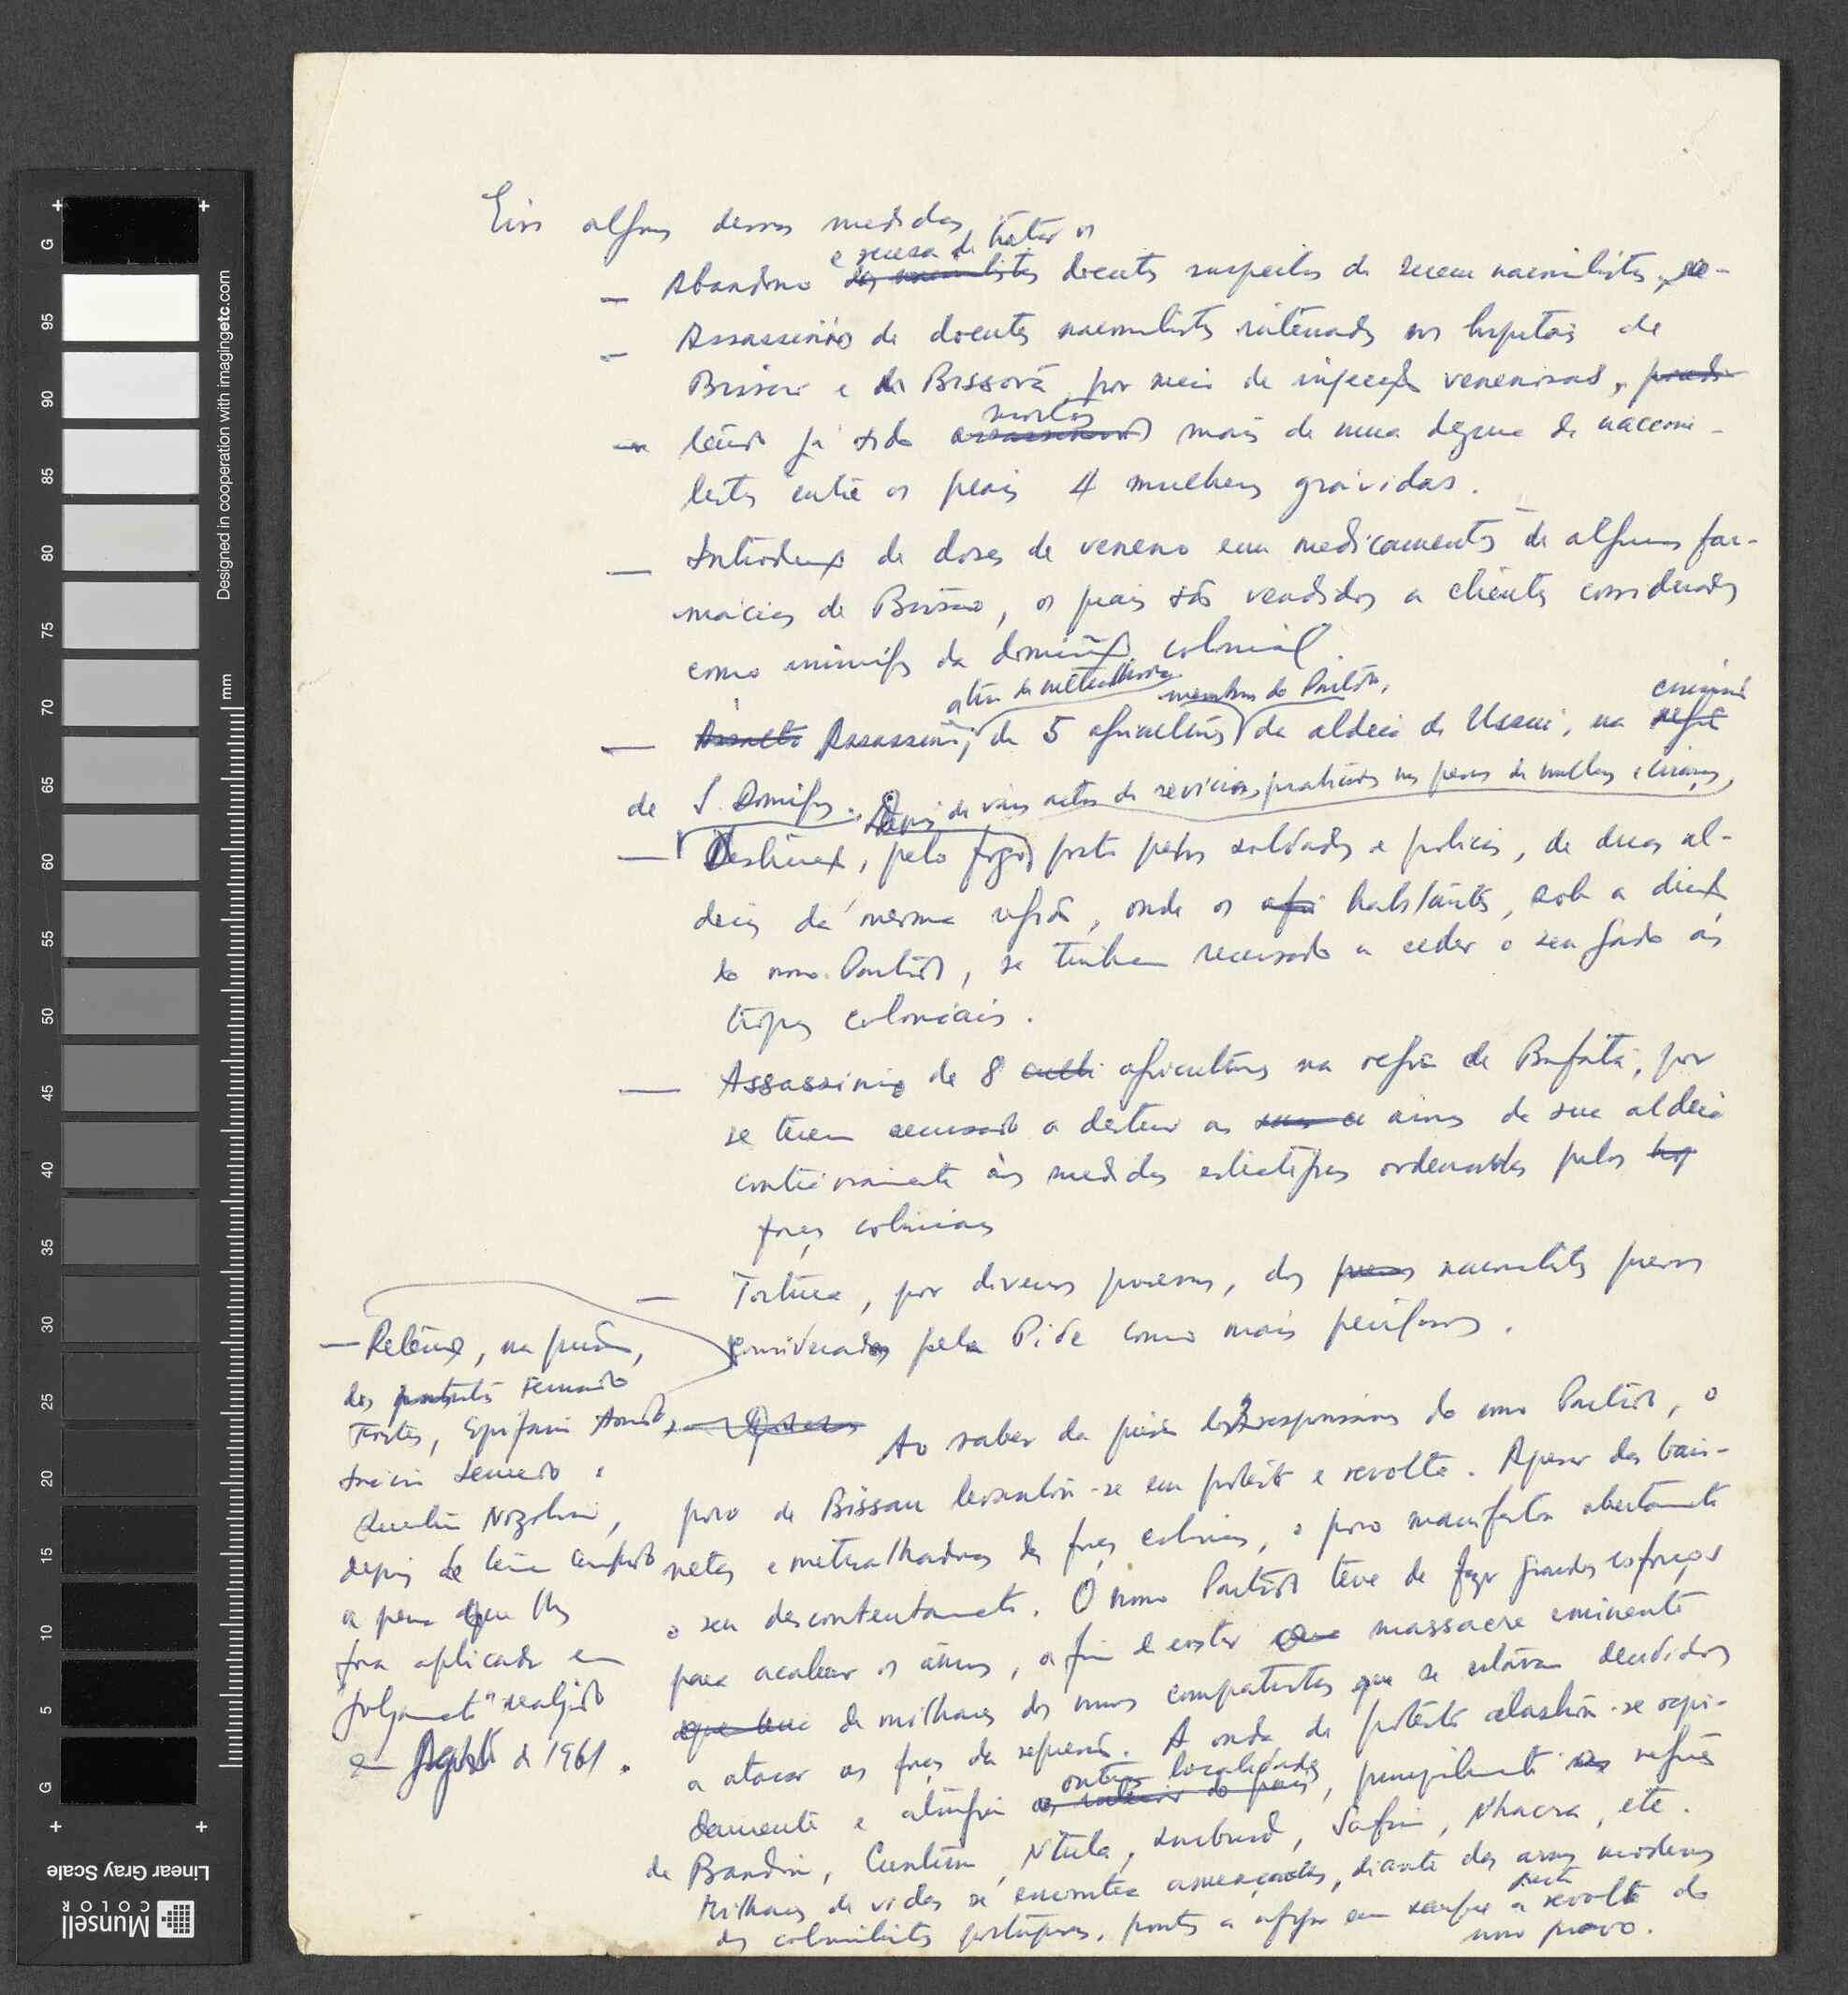 Eis algumas dessas medidas,
e recusa de tratar os
— Abandono dos nacionalistas doentes suspeitos de serem nacionalistas,
— Assassínio de doentes nacionalistas internados nos hospitais de
Bissau e de Bissorã por meio de injecções venenosas,
tendo já sido assassinados mortos mais de uma dezena de naciona-
listas entre os quais 4 mulheres grávidas.
— Introdução de doses de veneno em medicamentos de algumas far-
mácias de Bissau, os quais são vendidos a clientes considerados
como inimigos da dominação colonial.
a tiro de metralhadora membros do Partido,
— Assalto Assassínio, de 5 agricultores da aldeia de Ussui, na região
de S. Domingos. Depois de vários actos de sevícias, praticados nas pessoas de mulheres e crianças,
— Destruição, pelo fogo posto pelos soldados e polícias, de duas al-
deias da mesma região, onde os habitantes, sob a direcção
do nosso Partido, se tinham recusado a ceder o seu gado às
tropas coloniais.
— Assassínio de 8 culti agricultores na região de Bafatá, por
se terem recusado a destruir as da sua aldeia
contrariamente às medidas estratégicas ordenadas pelas
forças coloniais
— Tortura, por diversos processos, dos presos nacionalistas presos
considerados pela Pide como mais perigosos.
— Retenção, na prisão,
dos patriotas Fernando
Fortes, Epifânio Amado,
Inácio Semedo e
Quentin Nozolini,
depois de terem cumprido
a pena que lhes
fora aplicada em
"julgamento" realizado
em Agosto de 1961.
Ao saber da prisão dos 3 responsáveis do nosso Partido, o
povo de Bissau levantou-se em protesto e revolta. Apesar das baio-
netas e metralhadoras das forças coloniais, o povo manifestou abertamente
o seu descontentamento. O nosso Partido teve de fazer grandes esforços
para acalmar os ânimos, a fim de evitar massacre eminente
de milhares dos nossos compatriotas que se estavam decididos
a atacar as forças da repressão. A onda de protesto alastrou-se rapi-
damente e atingiu outras localidades do país, principalmente as regiões
de Bandim, Cuntum, Ntula, Safim, Nhacra, etc.
Milhares de vidas se encontra ameaçadas, diante das armas modernas
dos colonialistas portugueses, prontos a afogar em sangue a justa revolta do
nosso povo.